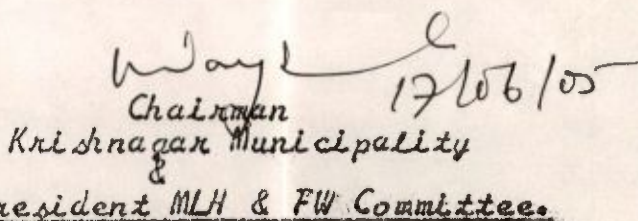 17/06/05
Chairman
Krishnagar Municipality
&
resident MLH & FW Committee.